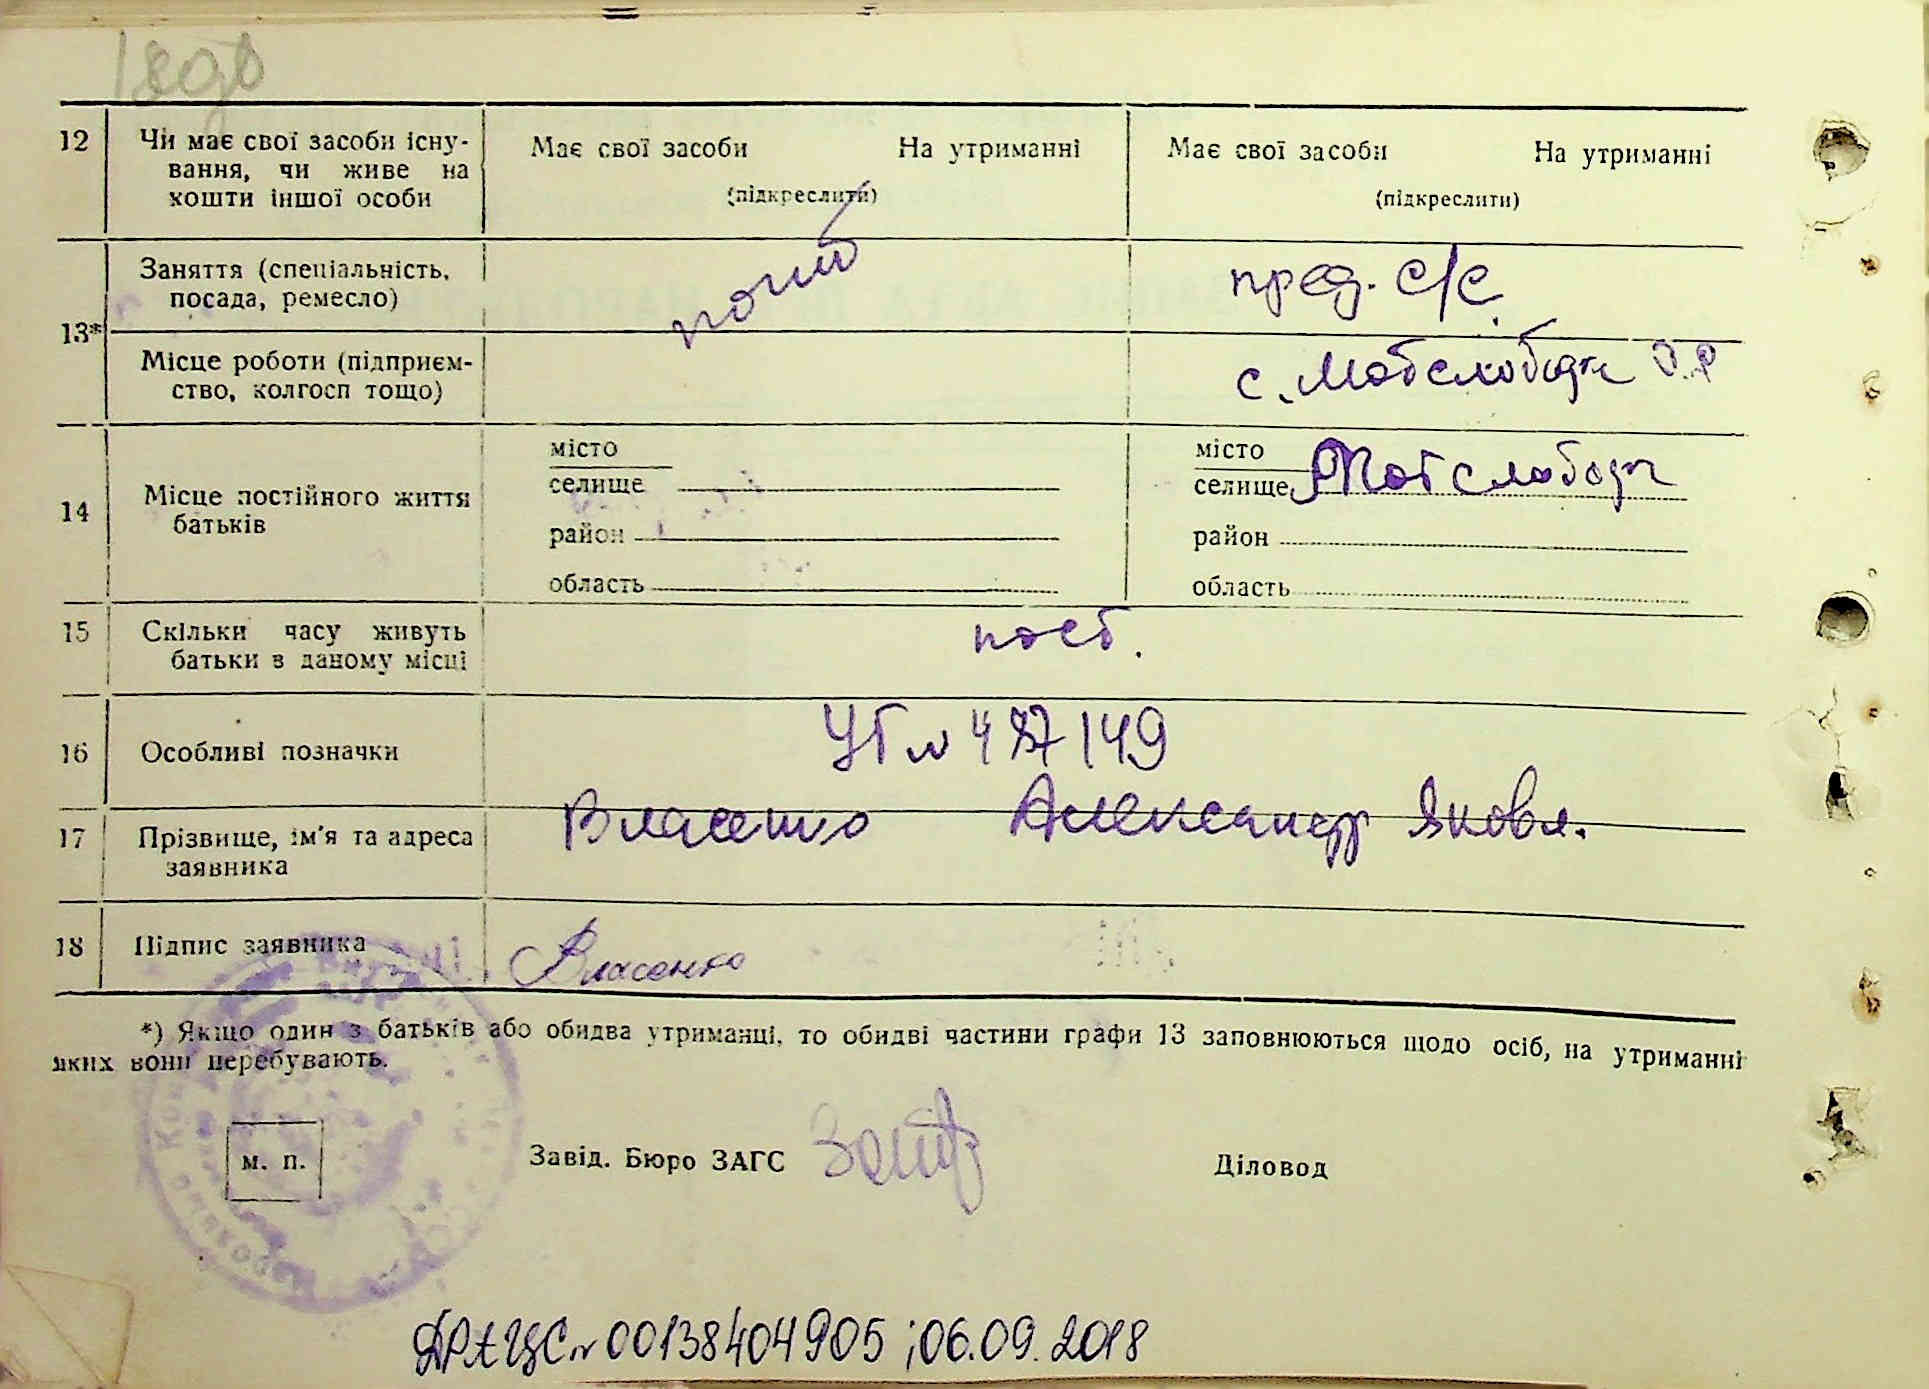 12
Чи має свої засоби існу-
вання, чи живе на
кошти іншої особи
Має свої засоби На утриманні
(підкреслити)
Має свої засоби На утриманні
(підкреслити)
13*
Заняття (спеціальність,
посада, ремесло)
пред. с/с.
Місце роботи (підприєм-
ство, колгосп тощо)
14
Місце постійного життя
батьків
місто
селище
район
область
місто
селище
район
область
15
Скільки часу живуть
батьки в даному місці
пост.
16
Особливі позначки
17
Прізвище, ім'я та адреса
заявника
Власенко Александр Яковл.
18
Підпис заявника
Власенко
*) Якщо один з батьків або обидва утриманці, то обидві частини графи 13 заповнюються щодо осіб, на утриманні
яких вони перебувають.
м. п.
Завід. Бюро ЗАГС
Діловод
ДРАЦС № 00138404905 ; 06.09.2018